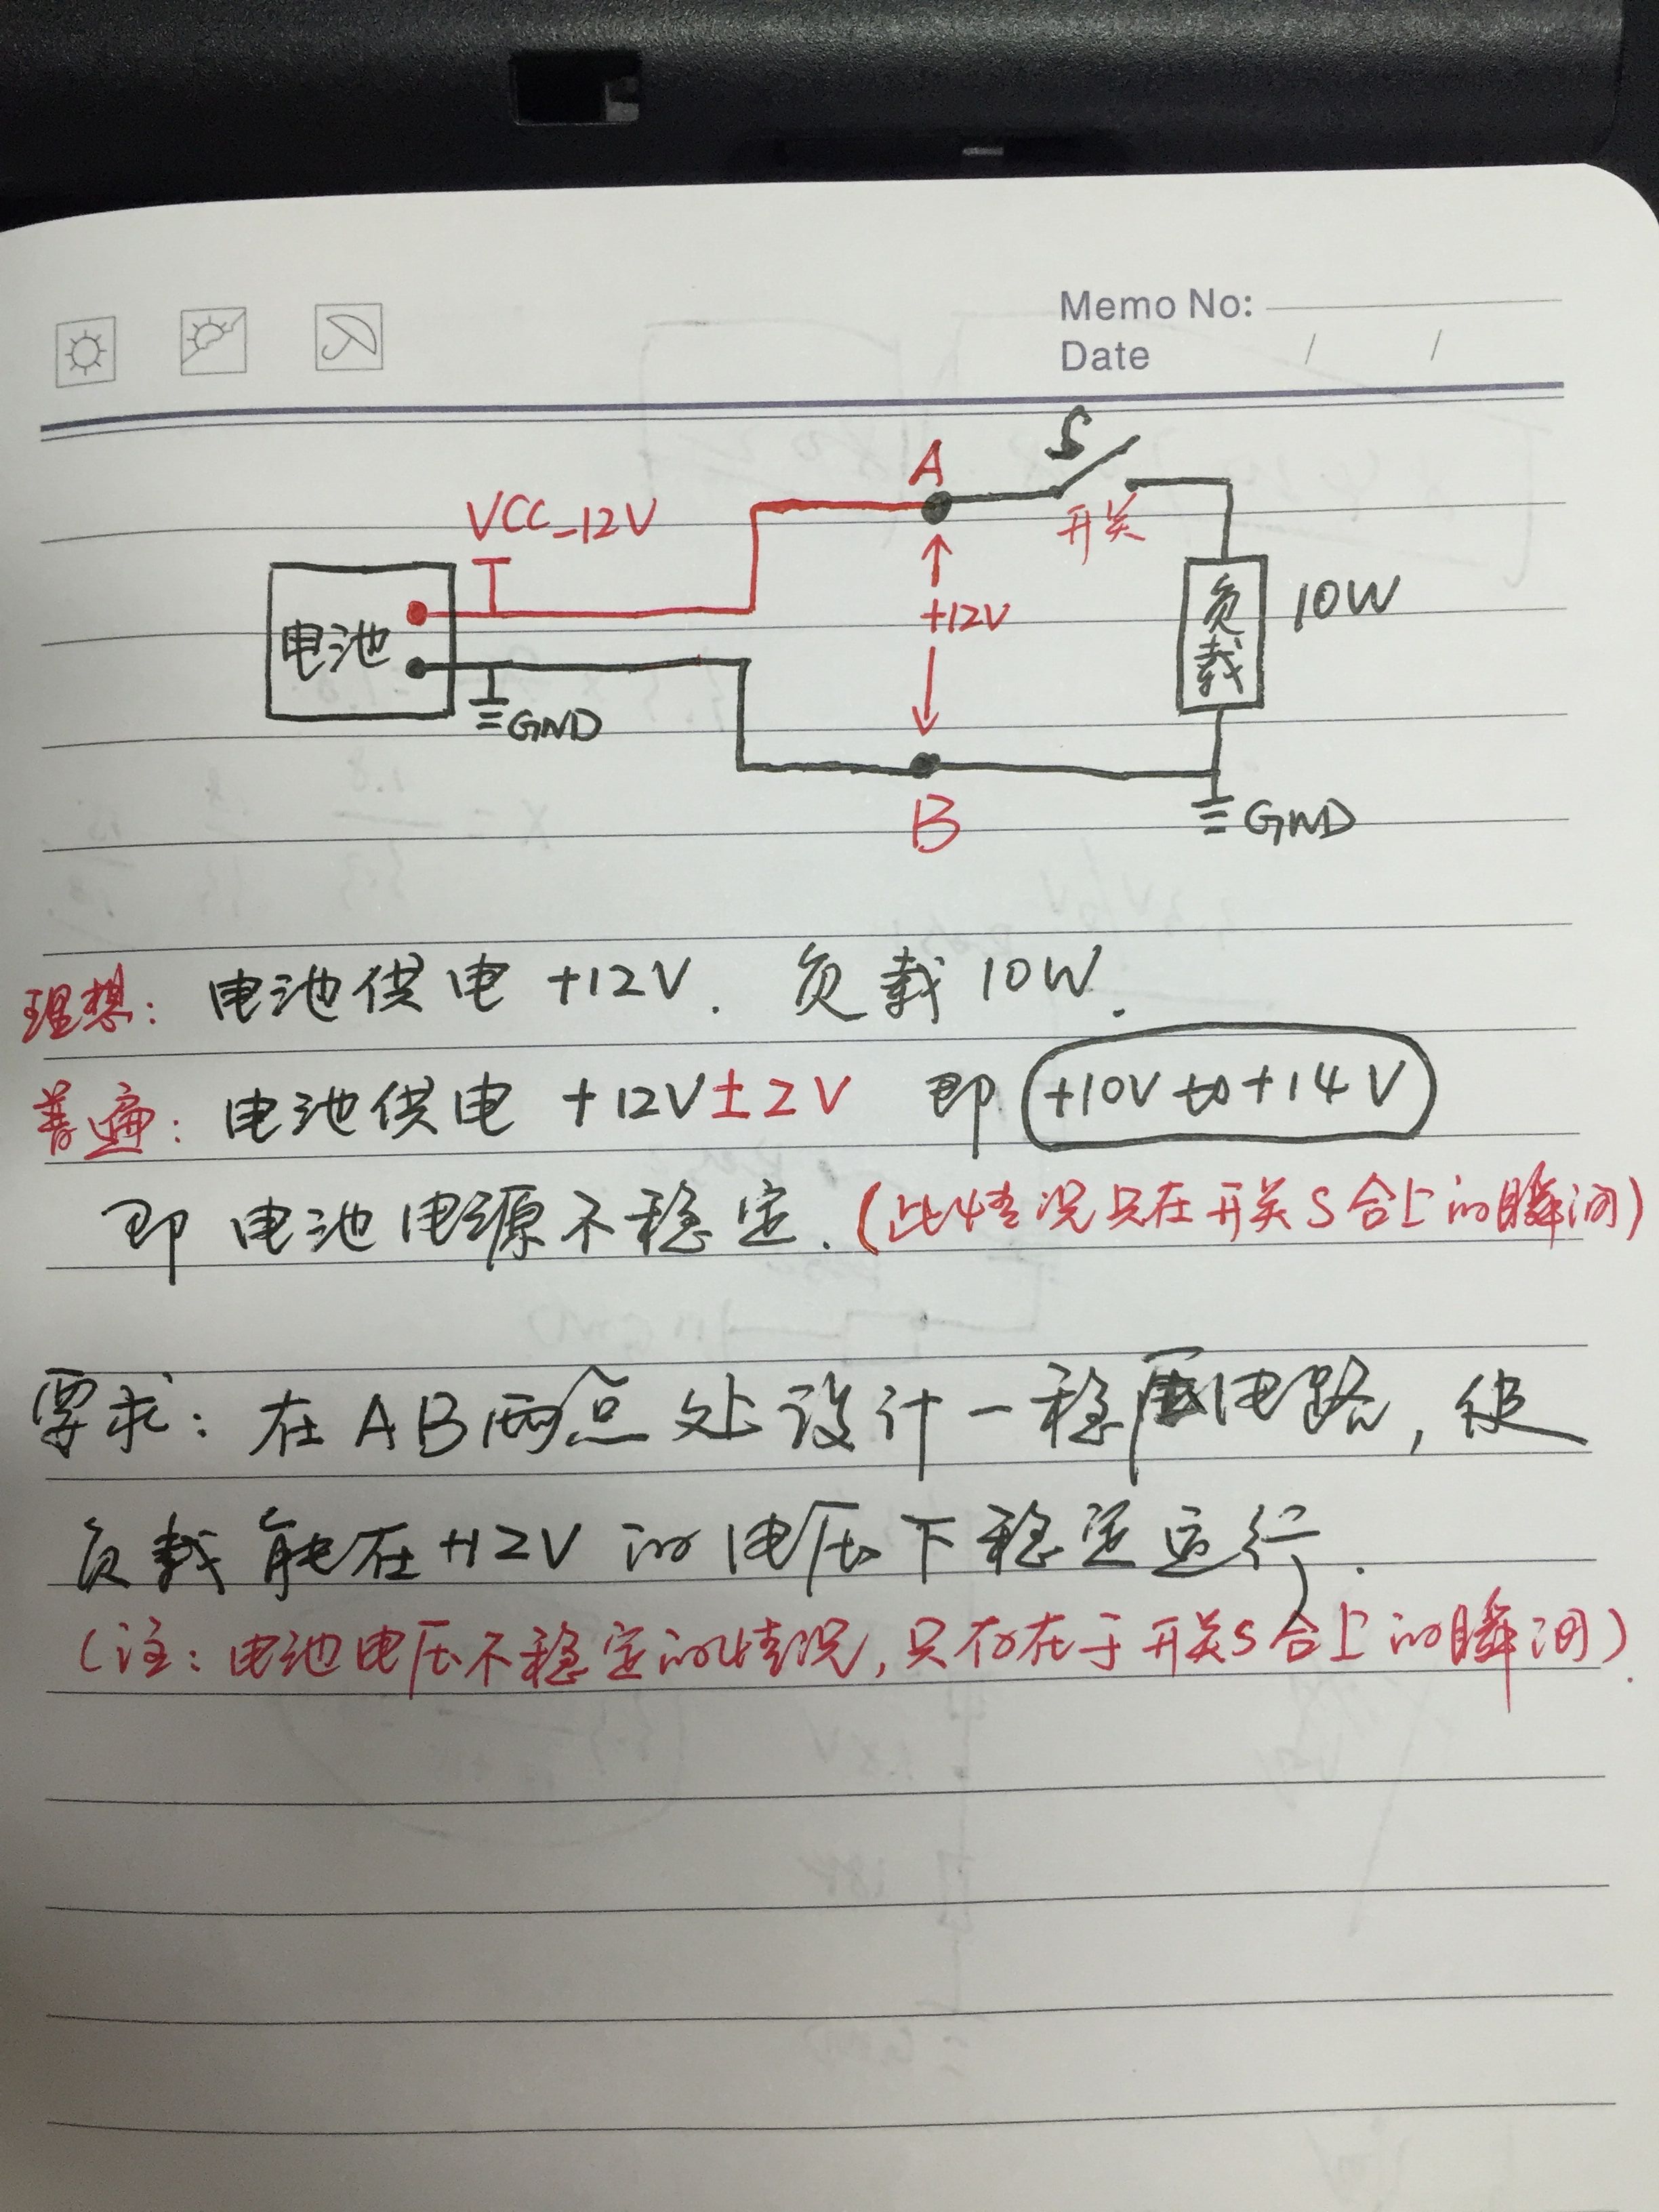 Memo No:
Date / /
A
S
VCC_12V
开关
电池
+12V
负载
10W
GND
B
GND
理想: 电池供电 +12V. 负载10W.
普遍: 电池供电 +12V±2V 即 +10V to +14V
即 电池电源不稳定. (此情况只在开关S合上的瞬间)
要求: 在AB两点处设计一稳压电路, 使
负载能在+12V的电压下稳定运行.
(注: 电池电压不稳定的情况, 只存在于开关S合上的瞬间).